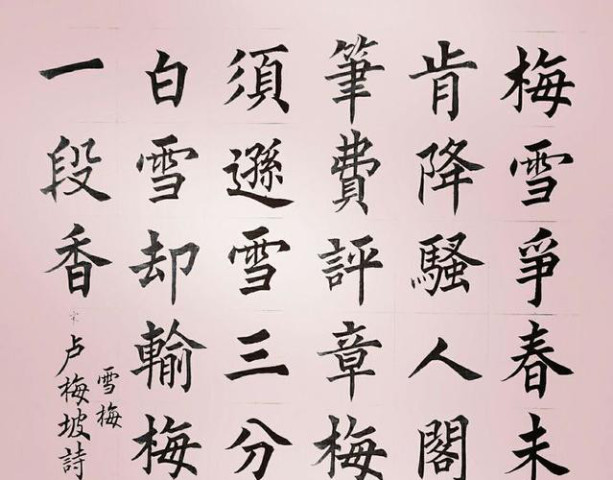 梅雪爭春未
肯降騷人閣
筆費評章梅
須遜雪三分
白雪却輸梅
一段香
雪梅
卢梅坡詩